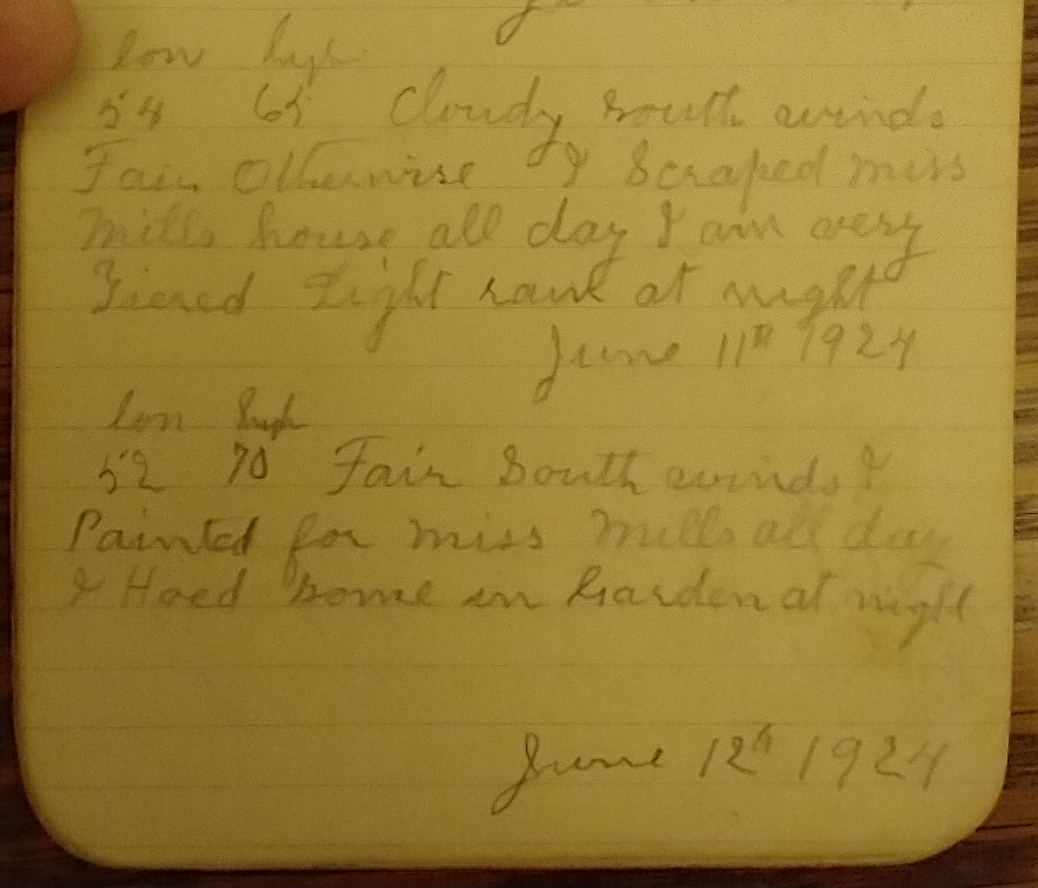 low high
54 65 Cloudy South winds
Fair Otherwise I Scraped miss
Mills house all day I am very
Tiered Light rain at night
June 11th 1924
low high
52 70 Fair South winds I
Painted for miss Mills all day
& Hoed some in Garden at night
June 12th 1924